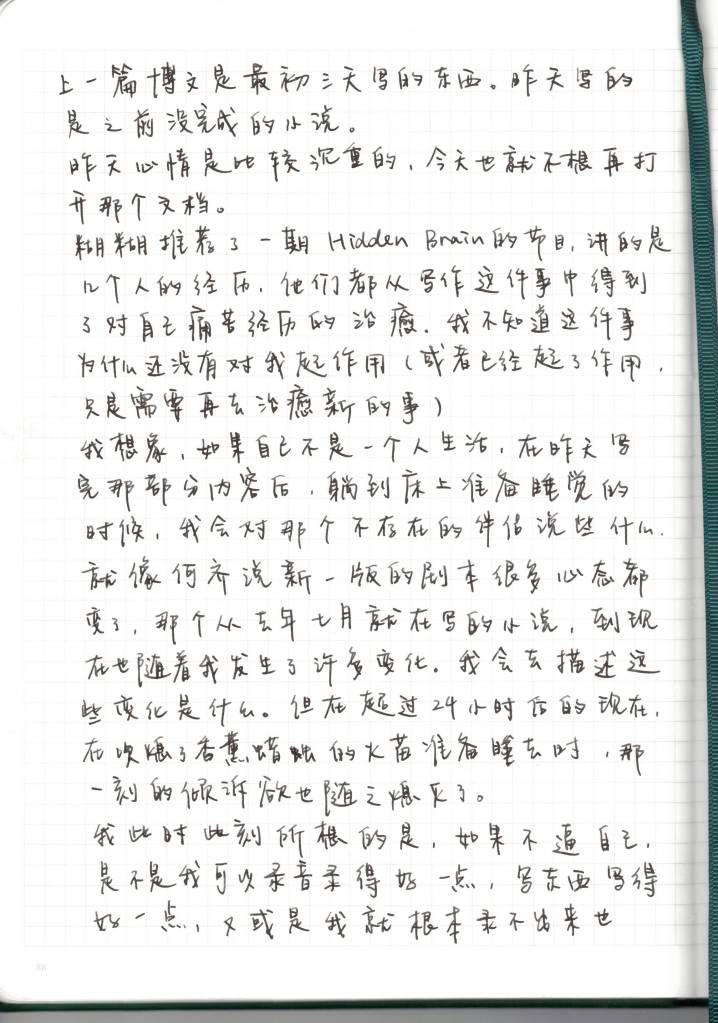 上一篇博文是最初三天写的东西。昨天写的
是之前没完成的小说。
昨天心情是比较沉重的，今天也就不想再打
开那个文档。
糊糊推荐了一期 Hidden Brain 的节目，讲的是
几个人的经历，他们都从写作这件事中得到
了对自己痛苦经历的治癒。我不知道这件事
为什么还没有对我起作用（或者已经起了作用，
只是需要再去治癒新的事）
我想象，如果自己不是一个人生活，在昨天写
完那部分内容后，躺到床上准备睡觉的
时候，我会对那个不存在的伴侣说些什么。
就像何齐说新一版的剧本很多心态都
变了，那个从去年七月就在写的小说，到现
在也随着我发生了许多变化。我会去描述这
些变化是什么。但在超过24小时后的现在，
在吹熄了香薰蜡烛的火苗准备睡去时，那
一刻的倾诉欲也随之熄灭了。
我此时此刻所想的是，如果不逼自己，
是不是我可以录音录得好一点，写东西写得
好一点，又或是我就根本录不出来也